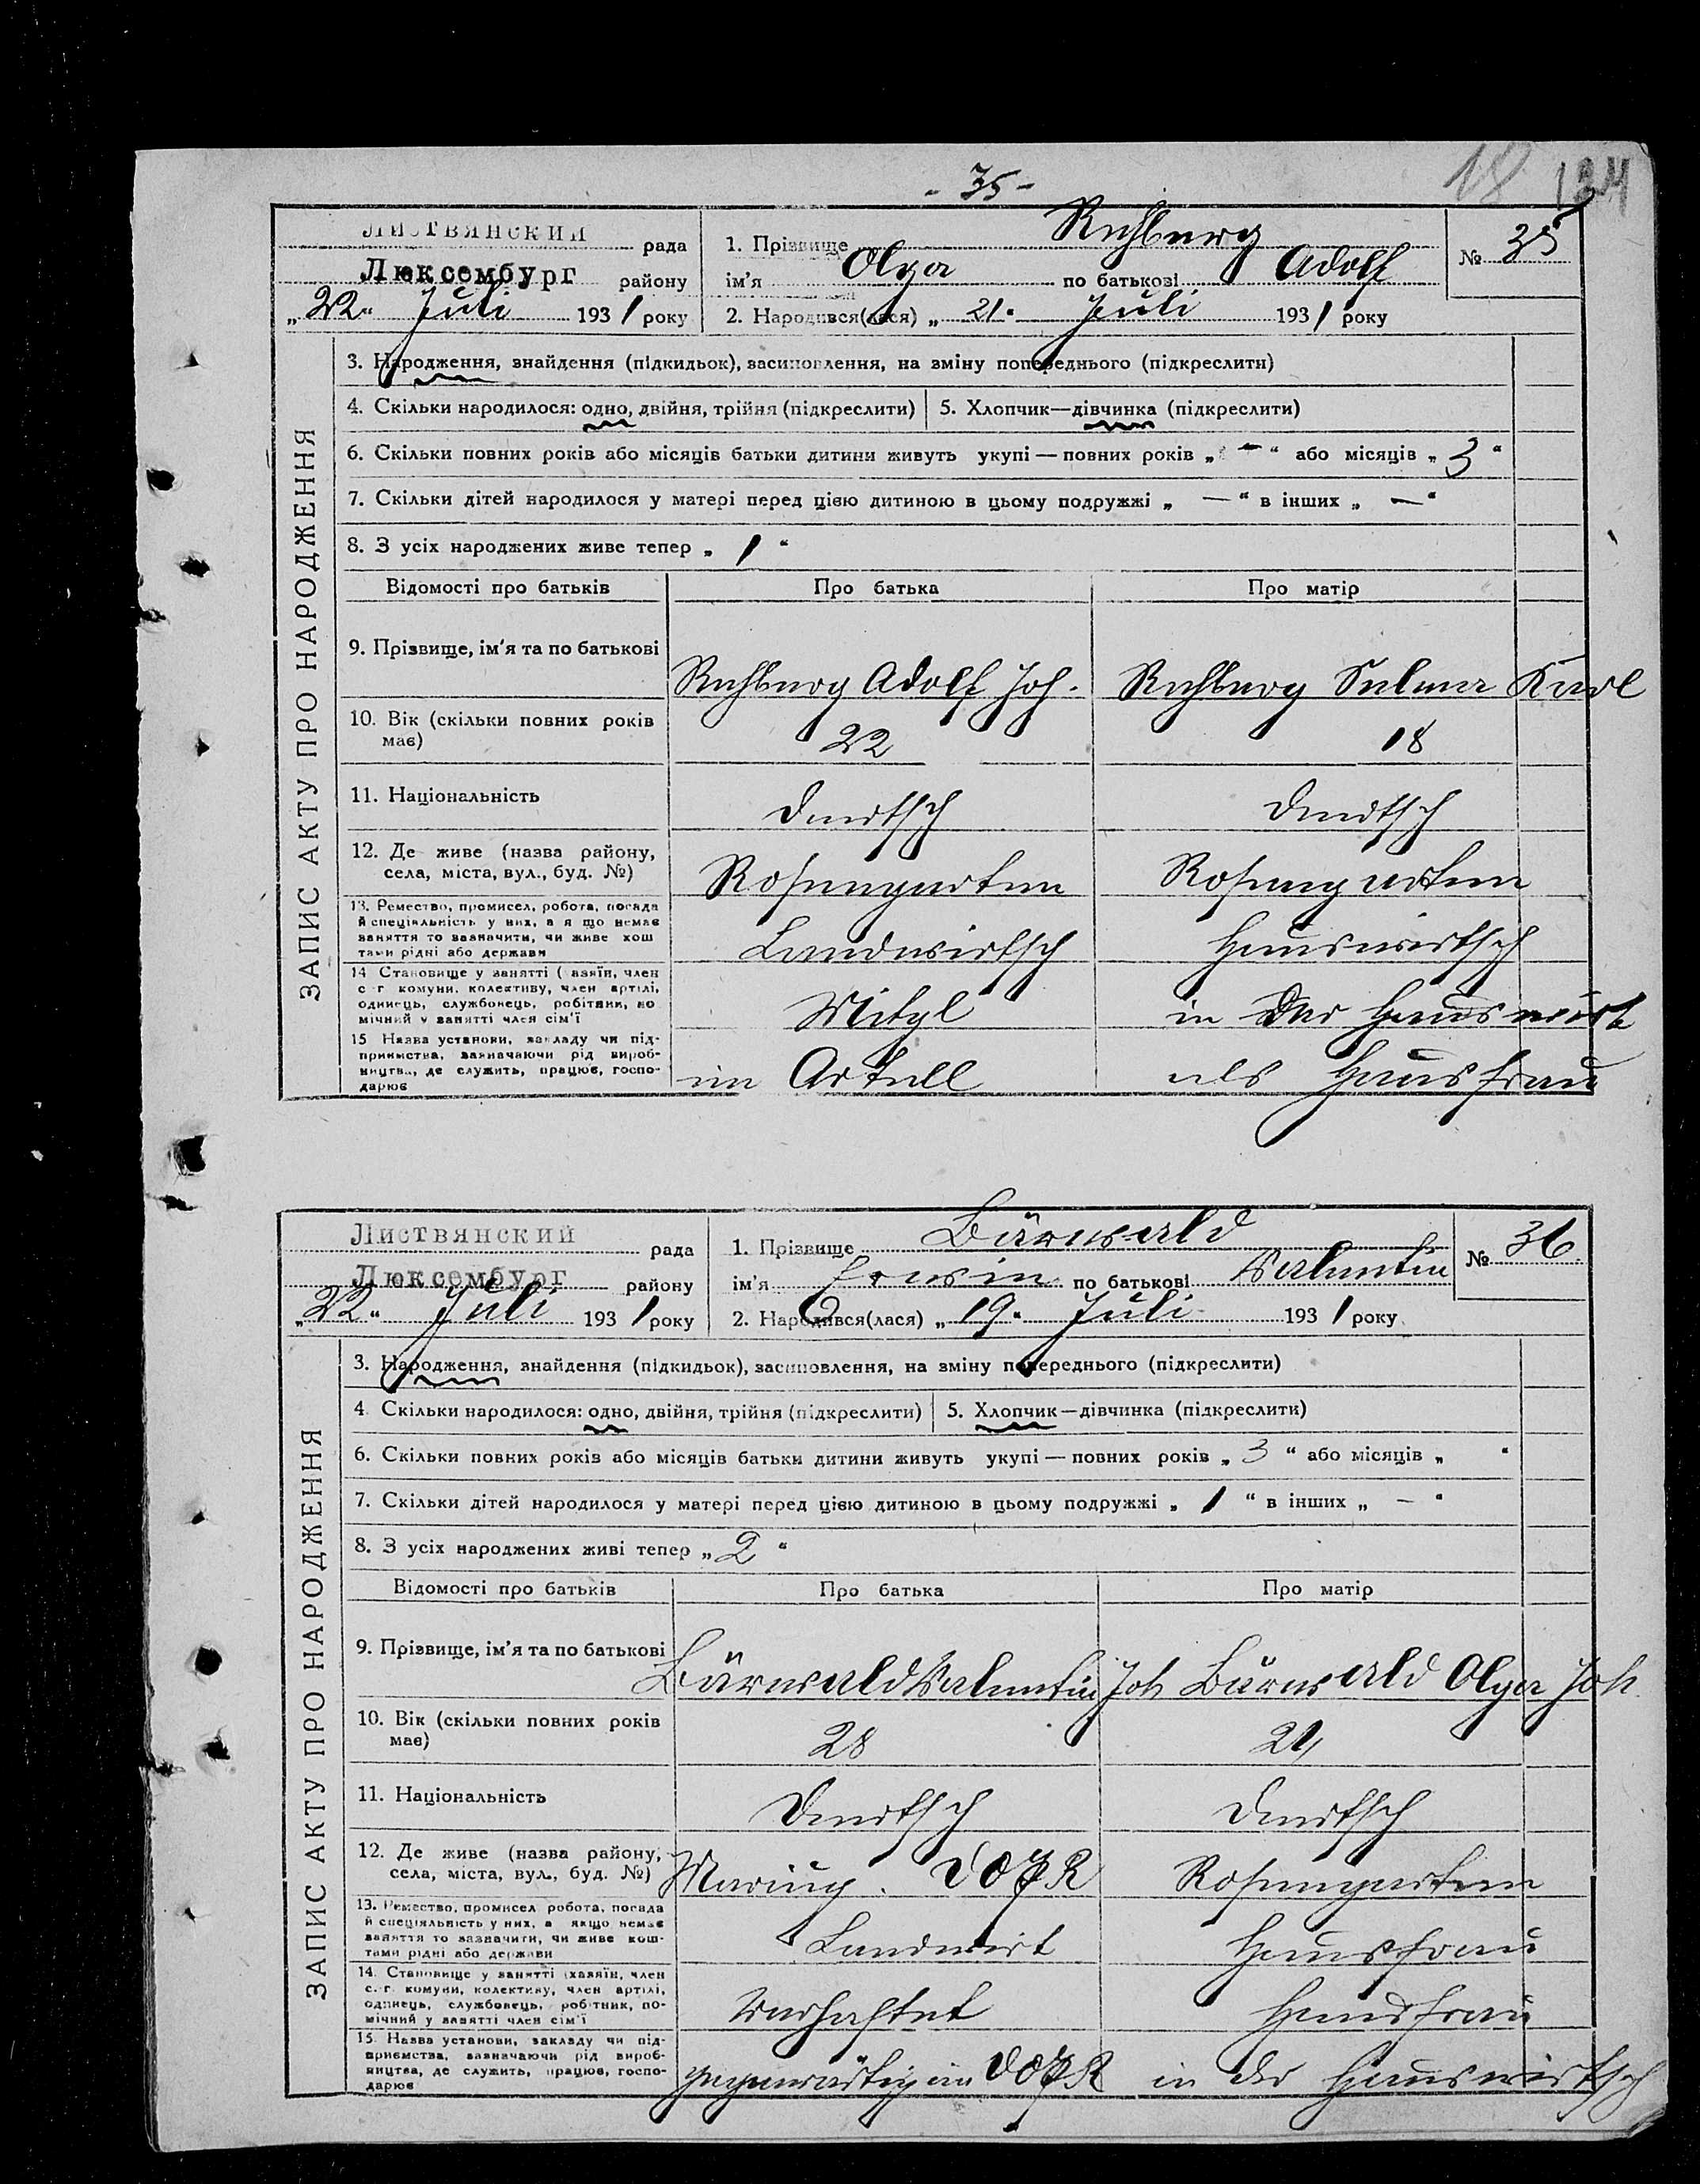 18 134
- 35 -
Листвянский рада
Люксембург району
„22“ Juli 1931 року
1. Прізвище Rehberg
ім'я Olga по батькові Adolf
2. Народився(лася) „21“ Juli 1931 року
№ 35
ЗАПИС АКТУ ПРО НАРОДЖЕННЯ
3. Народження, знайдення (підкидьок), засиновлення, на зміну попереднього (підкреслити)
4. Скільки народилося: одно, двійня, трійня (підкреслити) 5. Хлопчик—дівчинка (підкреслити)
6. Скільки повних років або місяців батьки дитини живуть укупі — повних років „ — “ або місяців „ 3 “
7. Скільки дітей народилося у матері перед цією дитиною в цьому подружжі „ — “ в інших „ — “
8. З усіх народжених живе тепер „ 1 “
Відомості про батьків Про батька Про матір
9. Прізвище, ім'я та по батькові Rehberg Adolf Joh. Rehberg Selma Karl
10. Вік (скільки повних років
має) 22 18
11. Національність Deutsch Deutsch
12. Де живе (назва району,
села, міста, вул., буд. №) Rosengarten Rosengarten
13. Ремество, промисел, робота, посада
й спеціяльність у них, а я що немає
заняття то зазначити, чи живе кош
тами рідні або держави Landwirtsch Hauswirtsch
14 Становище у занятті ( азяїн, член
с г комуни, колективу, член артілі,
одинець, службовець, робітник, по
мічний у занятті член сім'ї Mitgl in der Hauswirt
15 Назва установи, закладу чи під-
приємства, зазначаючи рід вироб-
ництва, де служить, працює, госпо-
дарює im Artell als Hausfrau
Листвянский рада
Люксембург району
„22“ Juli 1931 року
1. Прізвище Bärwald
ім'я Erwin по батькові Valentin
2. Народився(лася) „19“ Juli 1931 року
№ 36.
ЗАПИС АКТУ ПРО НАРОДЖЕННЯ
3. Народження, знайдення (підкидьок), засиновлення, на зміну попереднього (підкреслити)
4. Скільки народилося: одно, двійня, трійня (підкреслити) 5. Хлопчик—дівчинка (підкреслити)
6. Скільки повних років або місяців батьки дитини живуть укупі — повних років „ 3 “ або місяців „ “
7. Скільки дітей народилося у матері перед цією дитиною в цьому подружжі „ 1 “ в інших „ — “
8. З усіх народжених живі тепер „ 2 “
Відомості про батьків Про батька Про матір
9. Прізвище, ім'я та по батькові Bärwald Valentin Joh Bärwald Olga Joh
10. Вік (скільки повних років
має) 28
11. Національність Deutsch Deutsch
12. Де живе (назва району,
села, міста, вул., буд. №) Rosengarten
13. Ремество, промисел робота, посада
й спеціяльність у них, а якщо немає
заняття то зазначити, чи живе кош-
тами рідні або держави Landwirt Hausfrau
14. Становище у занятті (хазяїн, член
с.-г. комуни, колективу, член артілі,
одинець, службовець, робітник, по-
мічний у занятті член сім'ї Verhaftet Hausfrau
15. Назва установи, закладу чи під-
приємства, зазначаючи рід вироб-
ництва, де служить, працює, госпо-
дарює gegenwärtig im in der Hauswirtsch